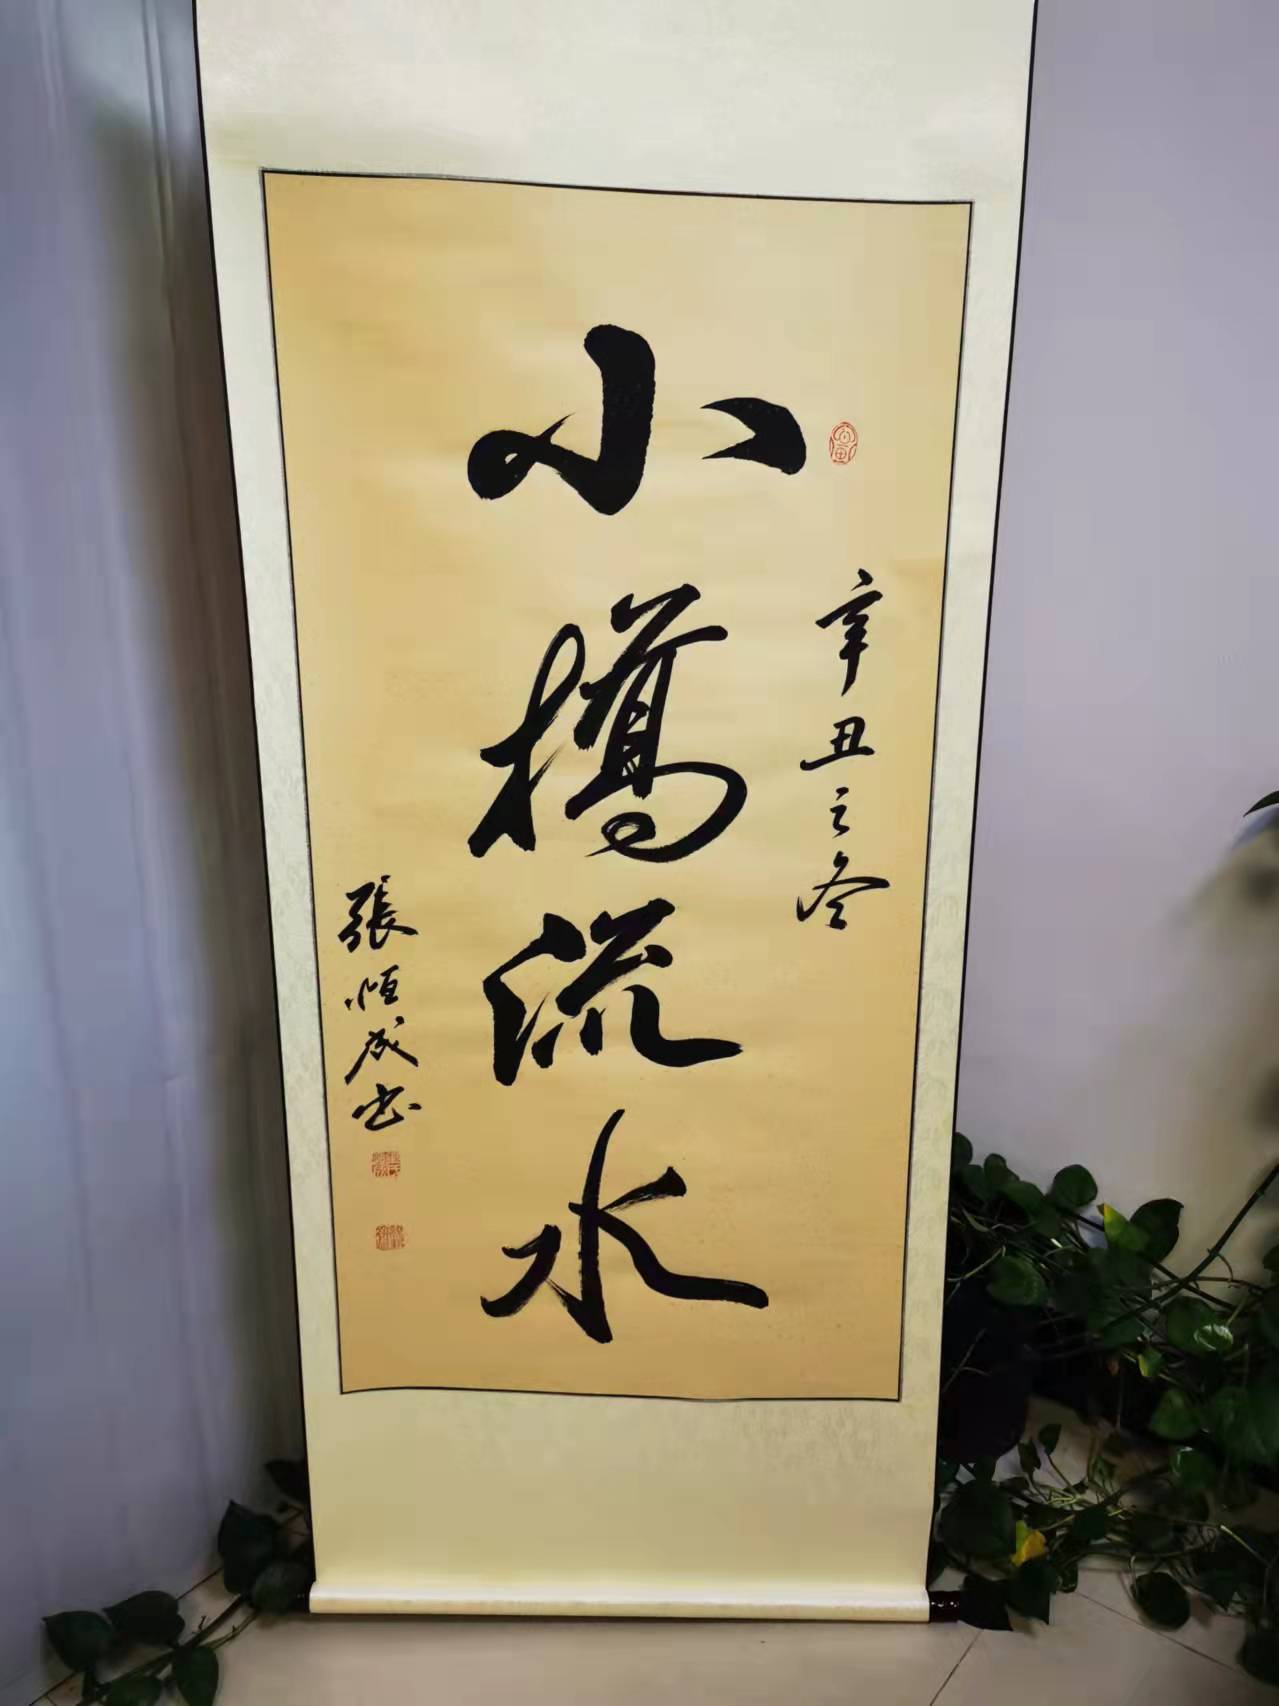 辛丑之冬
小橋流水
張恒成书